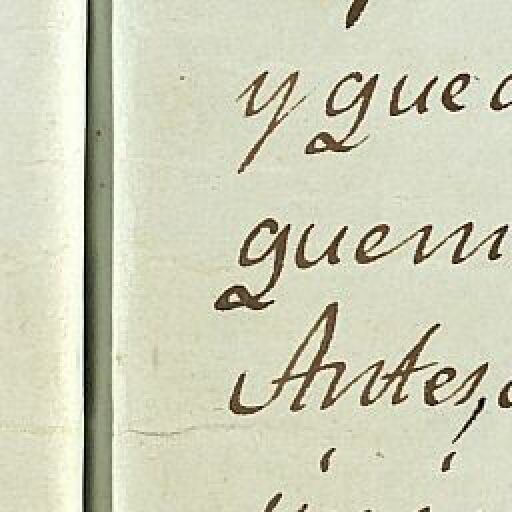 y que
quem
Antes,